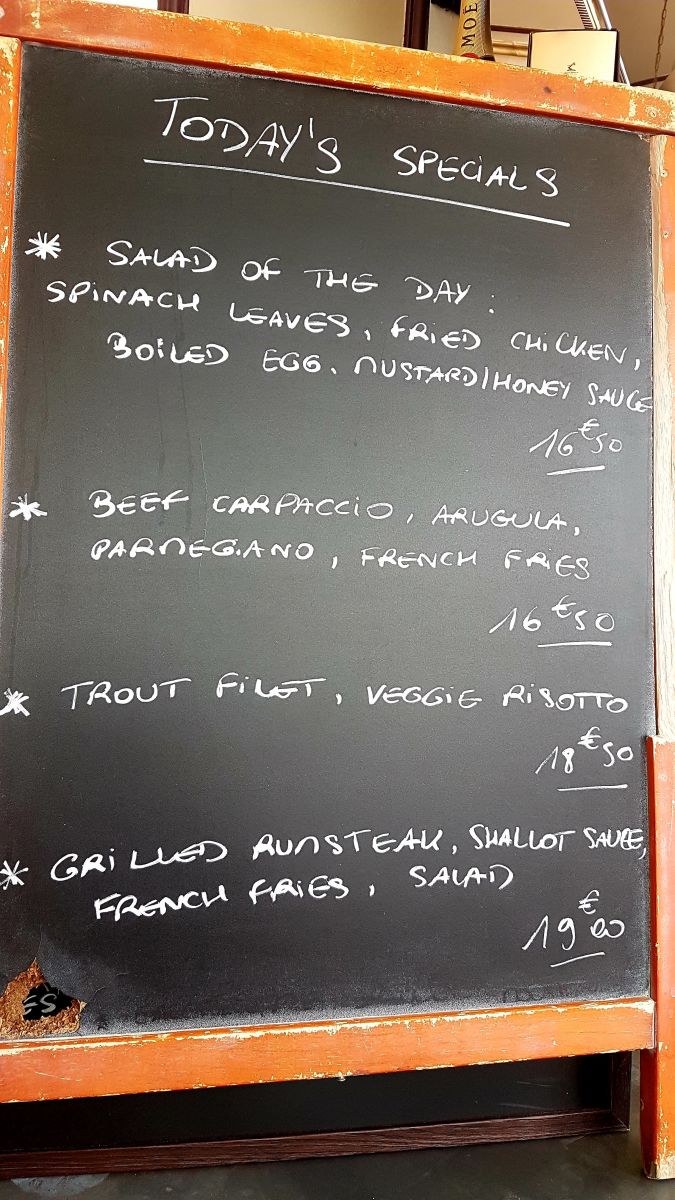 MOË
TODAY'S SPECIALS
* SALAD OF THE DAY :
SPINACH LEAVES, FRIED CHICKEN,
BOILED EGG, MUSTARD/HONEY SAUCE
16€50
* BEEF CARPACCIO, ARUGULA,
PARMEGIANO, FRENCH FRIES
16€50
* TROUT FILET, VEGGIE RISOTTO
18€50
* GRILLED RUMSTEAK, SHALLOT SAUCE,
FRENCH FRIES, SALAD
19€00
ES